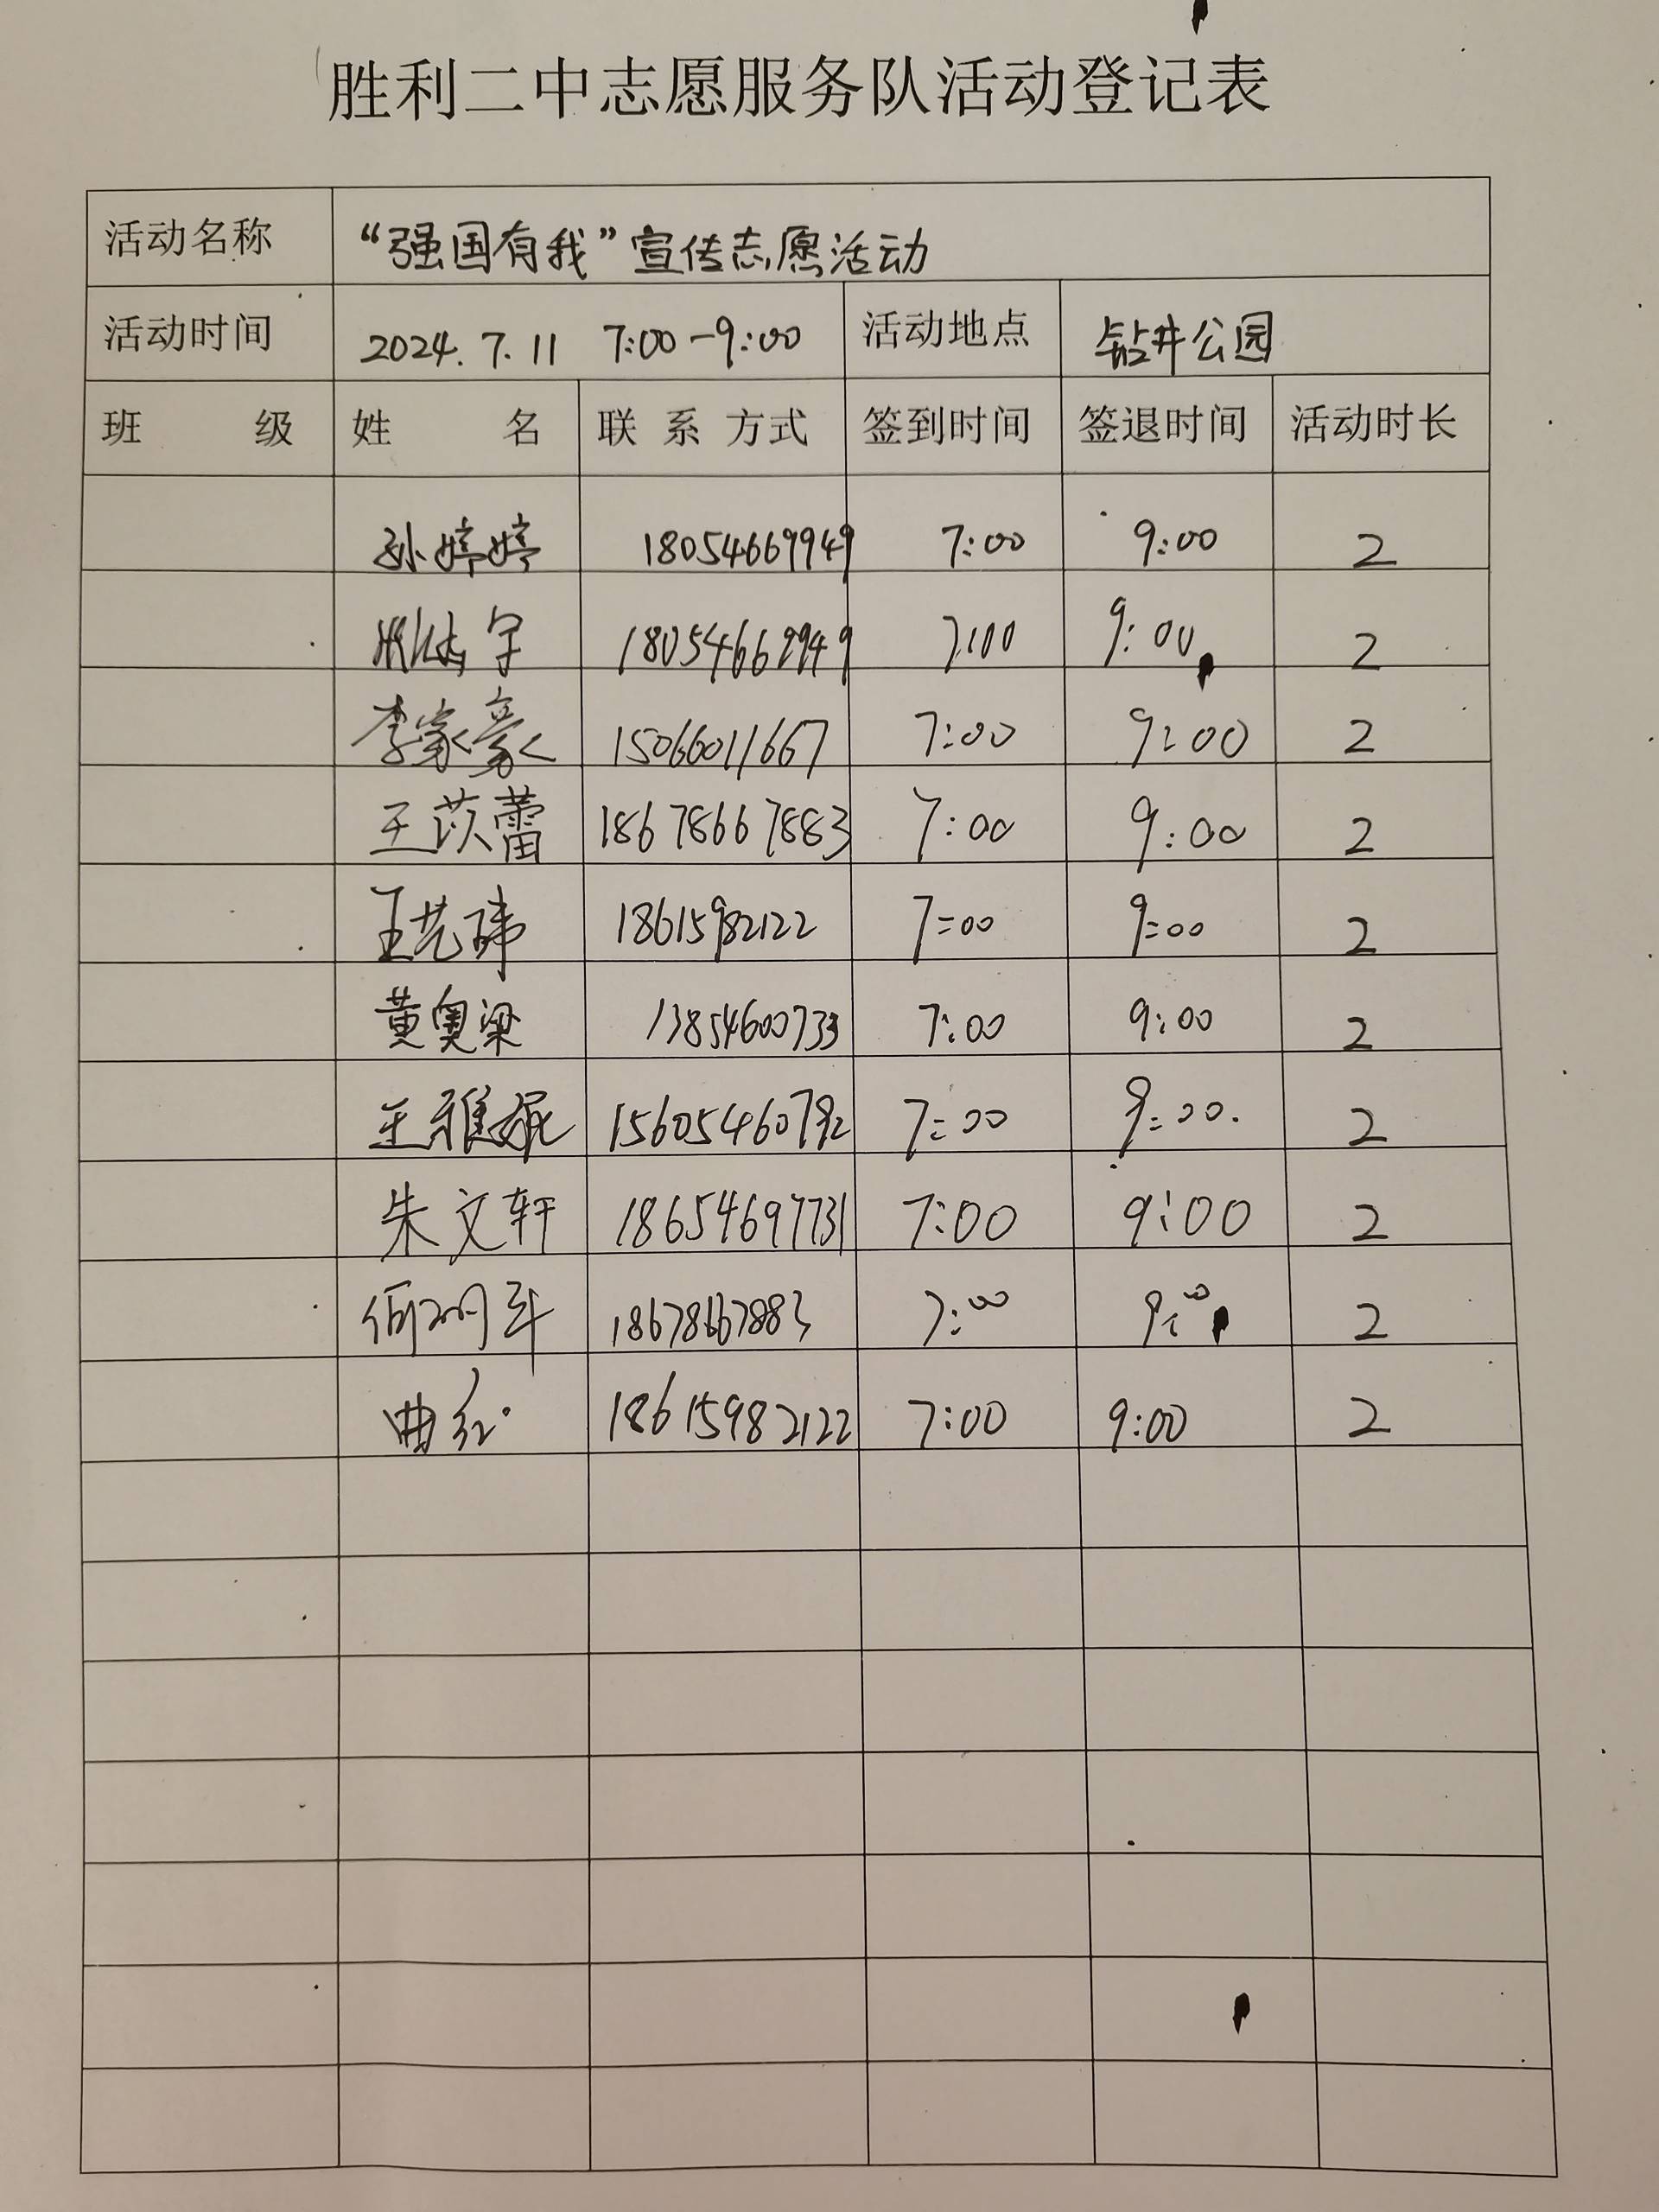 胜利二中志愿服务队活动登记表
活动名称 “强国有我”宣传志愿活动
活动时间 2024.7.11 7:00-9:00 活动地点 钻井公园
班 级 姓 名 联系方式 签到时间 签退时间 活动时长
孙婷婷 18054669949 7:00 9:00 2
宇 18054669949 7:00 9:00 2
李家豪 15066011667 7:00 9:00 2
王苡蕾 18678667883 7:00 9:00 2
王艺玮 18615982122 7:00 9:00 2
黄奥梁 13854600733 7:00 9:00 2
王雅妮 15605460792 7:00 9:00 2
朱文轩 18654697731 7:00 9:00 2
18678667883 7:00 9:00 2
曲红 18615982122 7:00 9:00 2